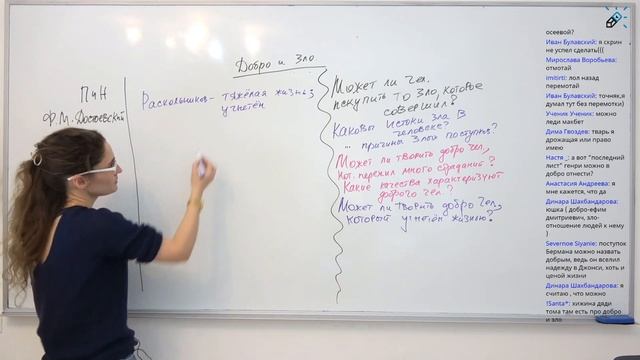 Добро и Зло
ПиН
Ф.М. Достоевский
Раскольников - тяжёлая жизнь,
угнетён
Может ли чел.
искупить то зло, которое
совершил?
Каковы истоки зла в
человеке?
... причины злой поступков?
Может ли творить добро чел,
кот. пережил много страданий?
Какие качества характеризуют
доброго чел.?
Может ли творить добро чел,
который угнетён жизнью?
осеевой?
Иван Булавский: я скрин
не успел сделать(((
Мирослава Воробьева:
отмотай
imitirti: лол назад
перемотай
Иван Булавский: точняк,я
думал тут без перемотки)
Ученик Ученик: можно
леди макбет
Дима Гвоздев: тварь я
дрожащая или право
имею
Настя _: а вот "последний
лист" генри можно в
добро отнести?
Анастасия Андреева: я
мне кажется, что да
Динара Шахбандарова:
юшка ( добро-ефим
дмитриевич, зло-
отношение людей к нему
)
Severnoe Siyanie: поступок
Бермана можно назвать
добрым, ведь он вселил
надежду в Джонси, хоть и
ценой жизни
Динара Шахбандарова: я
считаю , что можно
!Santa*: хижина дяди
тома там есть про добро
и зло